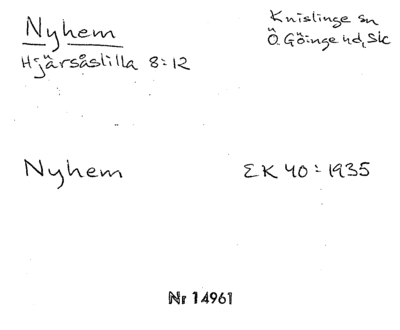 Nyhem
Knislinge sn
Hjärsåslilla 8:12
Ö. Göinge hd, Sk
Nyhem
EK 40:1935
Nr 14961